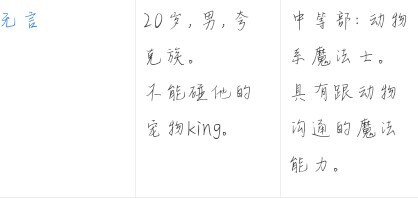 无言
20岁,男,夸
克族。
不能碰他的
宠物king。
中等部:动物
系魔法士。
具有跟动物
沟通的魔法
能力。